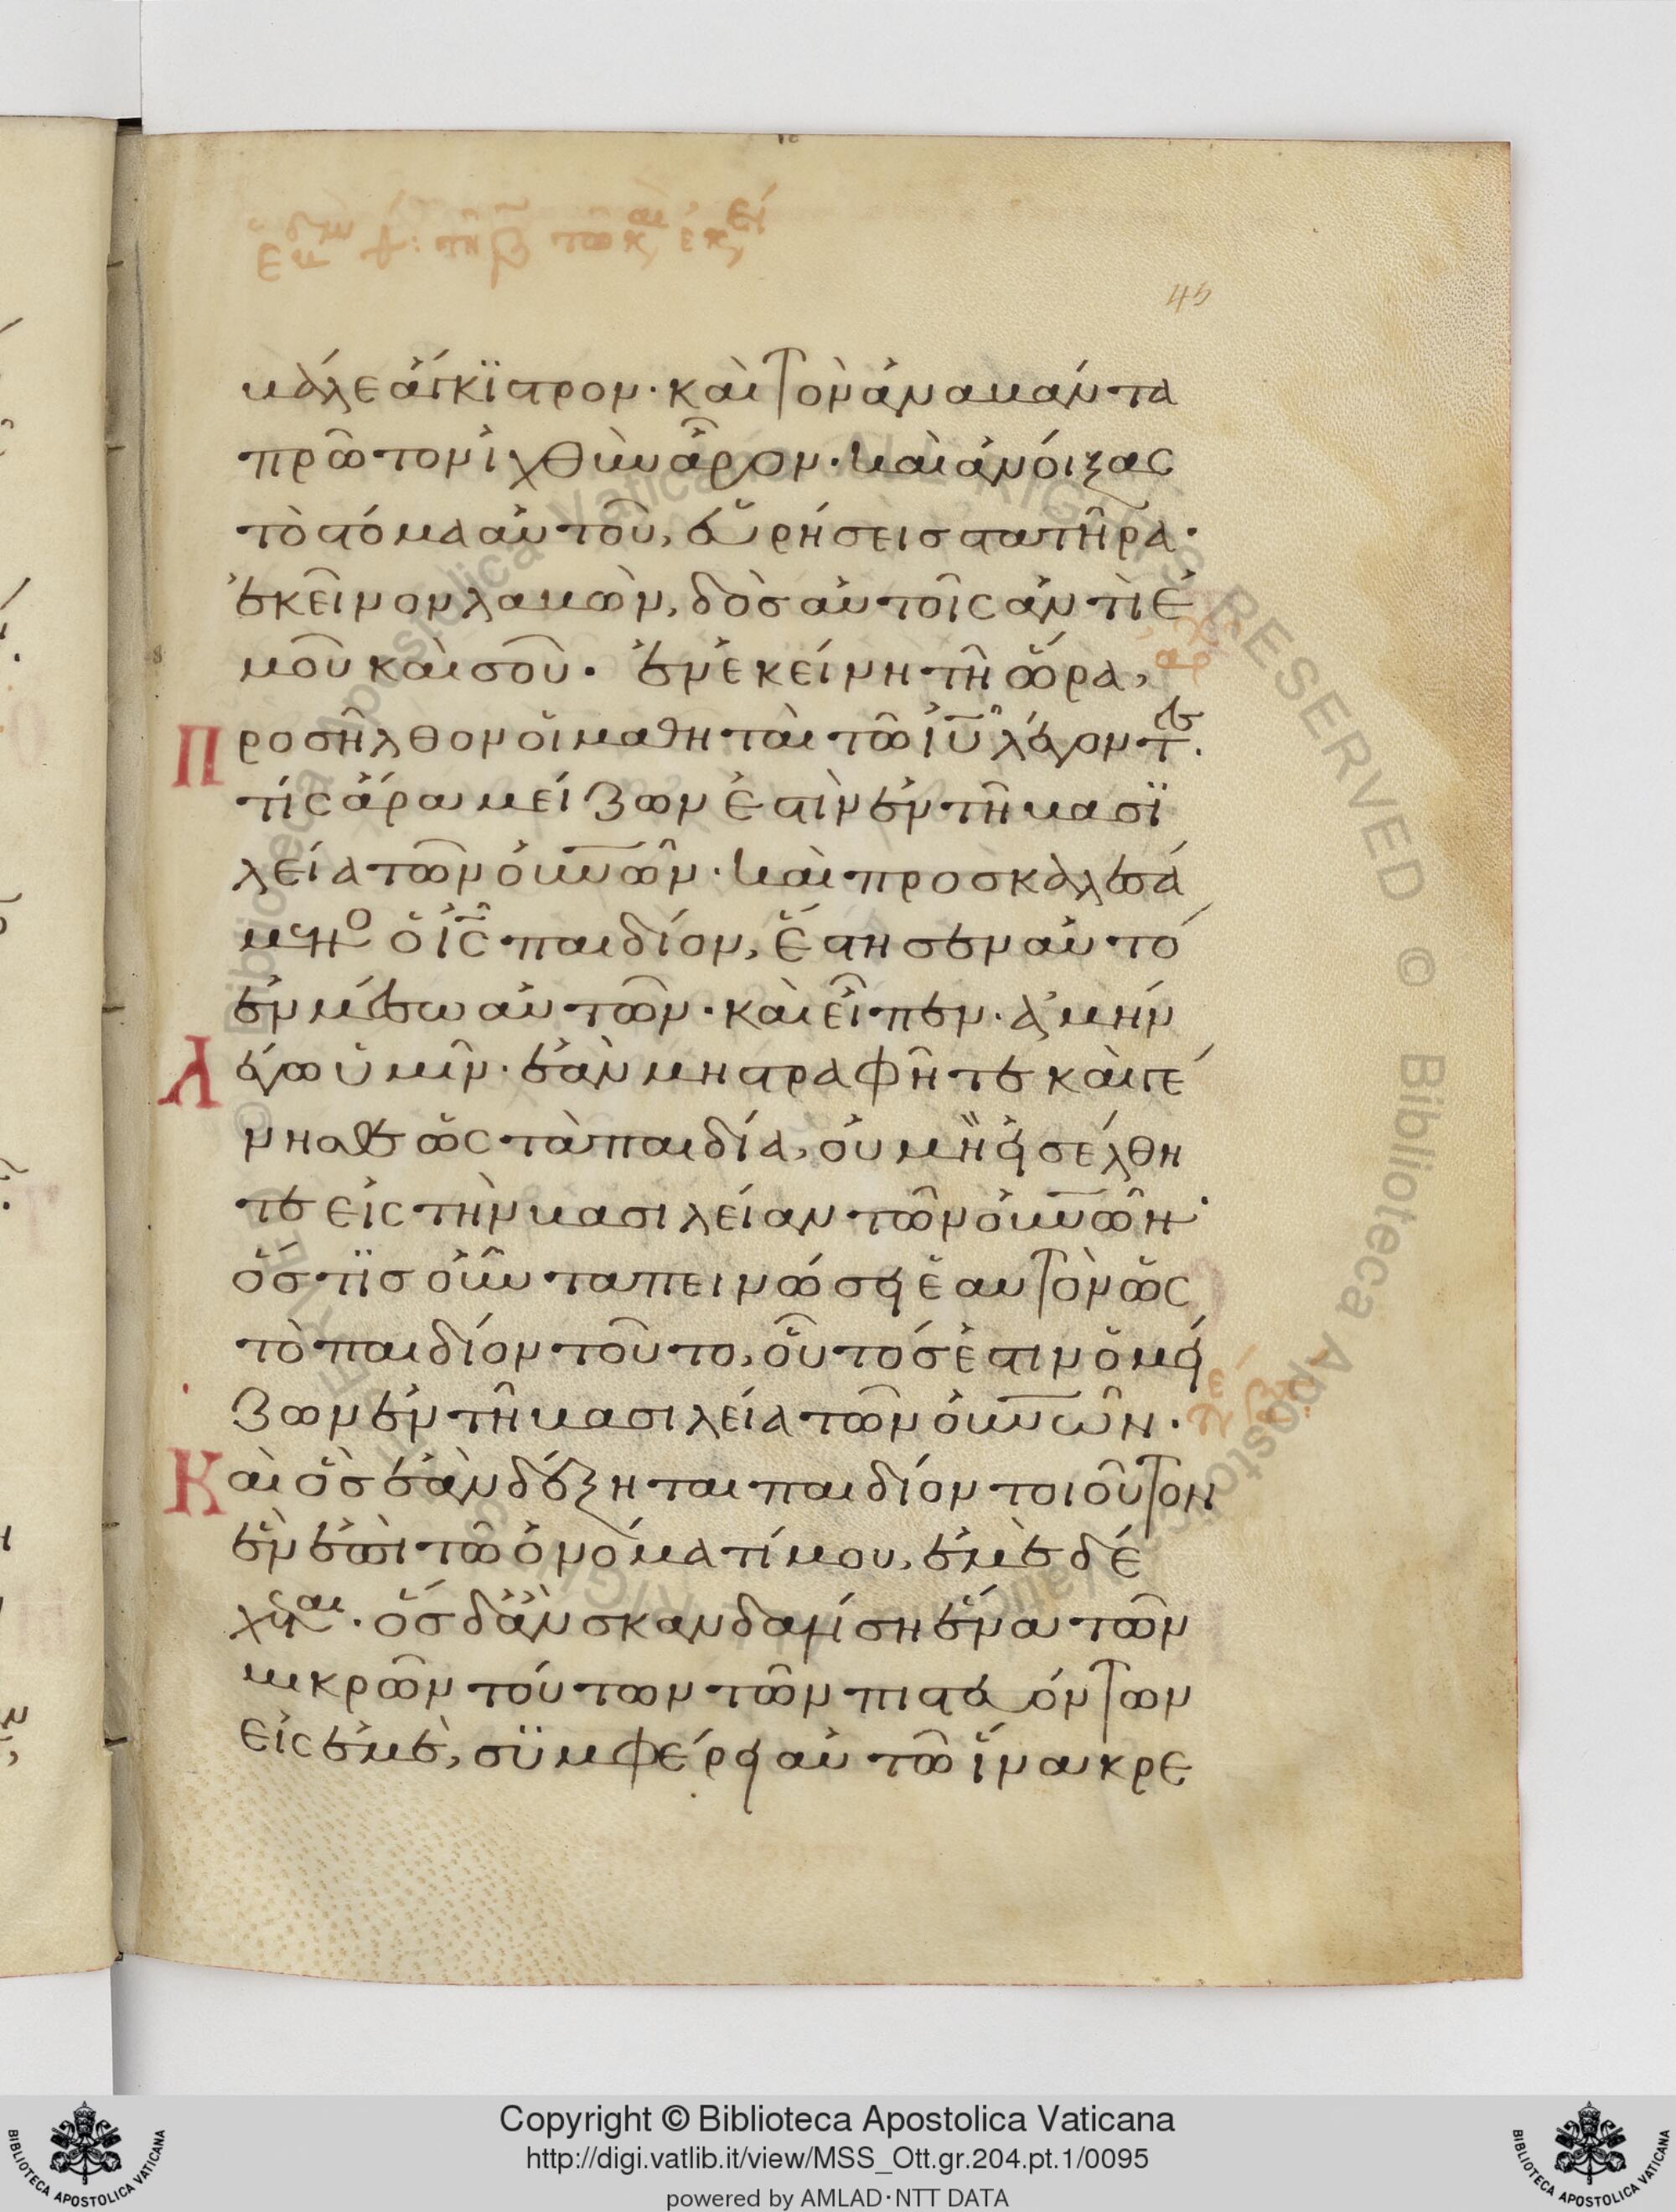 45
βάλε ἄγκϊστρον· καὶ τὸν ἀναβάντα
πρῶτον ἰχθὺν ἆρον· καὶ ἀνοίξας
τὸ στόμα αὐτοῦ, εὑρήσεις στατῆρα·
ἐκεῖνον λαβὼν, δὸς αὐτοῖς ἀντὶ ἐ
μοῦ καὶ σοῦ· ἐν ἐκείνη τῆ ὥρα,
Προσῆλθον οἱ μαθηταὶ τῶ ἰῦ λέγοντες·
τίς ἄρα μείζων ἐστὶν ἐν τῆ βασϊ
λεία τῶν οὐνῶν· καὶ προσκαλεσά
μενο ὁ ἰς παιδίον, ἔστησεν αὐτό
ἐν μέσω αὐτῶν· καὶ εἶπεν· ἀμήν
λέγω ὑμῖν· ἐὰν μὴ στραφῆτε καὶ γέ
νησθε ὡς τὰ παιδία, οὐ μὴ εἰσέλθη
τε εἰς τὴν βασιλείαν τῶν οὐνῶν·
ὅστϊς οὖν ταπεινώσει ἑαυτὸν ὡς
τὸ παιδίον τοῦτο, οὗτός ἐστιν ὁ μεί
ζων ἐν τῆ βασιλεία τῶν οὐνῶν·
Καὶ ὃς ἐὰν δέξηται παιδίον τοιοῦτον
ἓν ἐπὶ τῶ ὀνόματί μου, ἐμὲ δέ
χεται· ὅς δ ἂν σκανδαλίση ἕνα τῶν
μικρῶν τούτων τῶν πιστευόντων
εἰς ἐμὲ, σϋμφέρει αὐτῶ ἵνα κρε
© Biblioteca Apostolica Vaticana ALL RIGHTS RESERVED © Biblioteca Apostolica Vaticana ALL RIGHTS RESERVED
Copyright © Biblioteca Apostolica Vaticana
http://digi.vatlib.it/view/MSS_Ott.gr.204.pt.1/0095
powered by AMLAD·NTT DATA
BIBLIOTECA APOSTOLICA VATICANA
BIBLIOTECA APOSTOLICA VATICANA